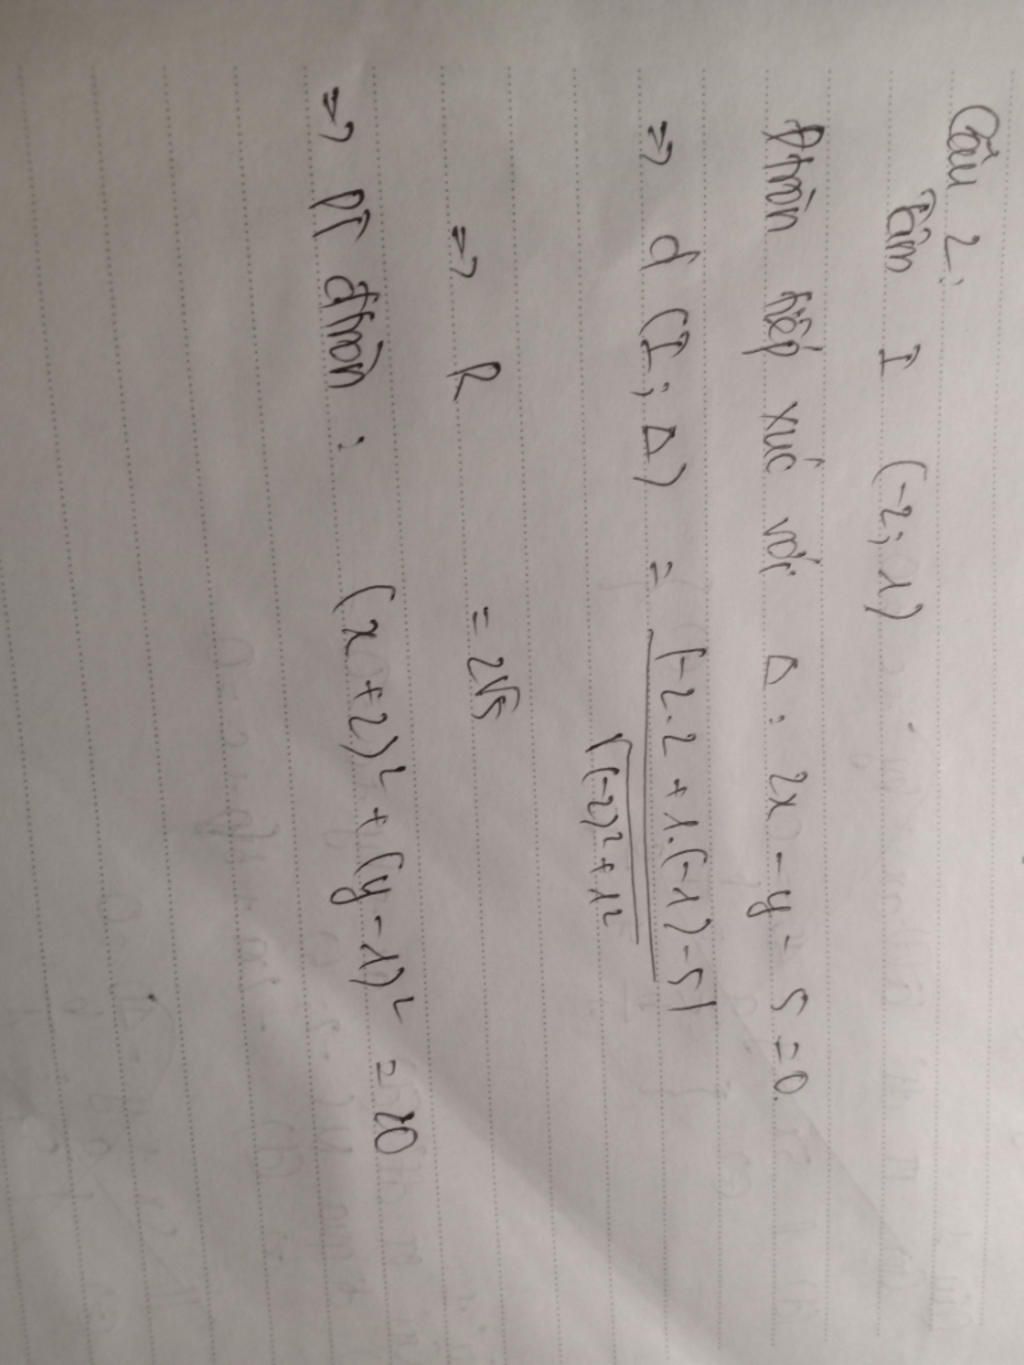 Câu 2:
Tâm I (-2; 1)
Đtròn tiếp xúc với Δ: 2x - y - 5 = 0.
=> d (I; Δ) = |-2.2 + 1.(-1) - 5| / √(-2)² + 1²
=> R = 2√5
=> PT đtròn: (x + 2)² + (y - 1)² = 20